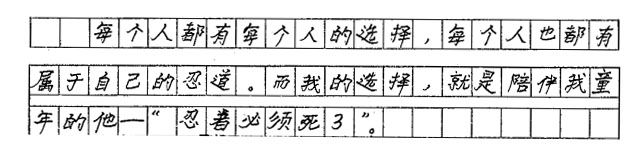 每个人都有每个人的选择，每个人也都有
属于自己的忍道。而我的选择，就是陪伴我童
年的他—“忍者必须死3”。